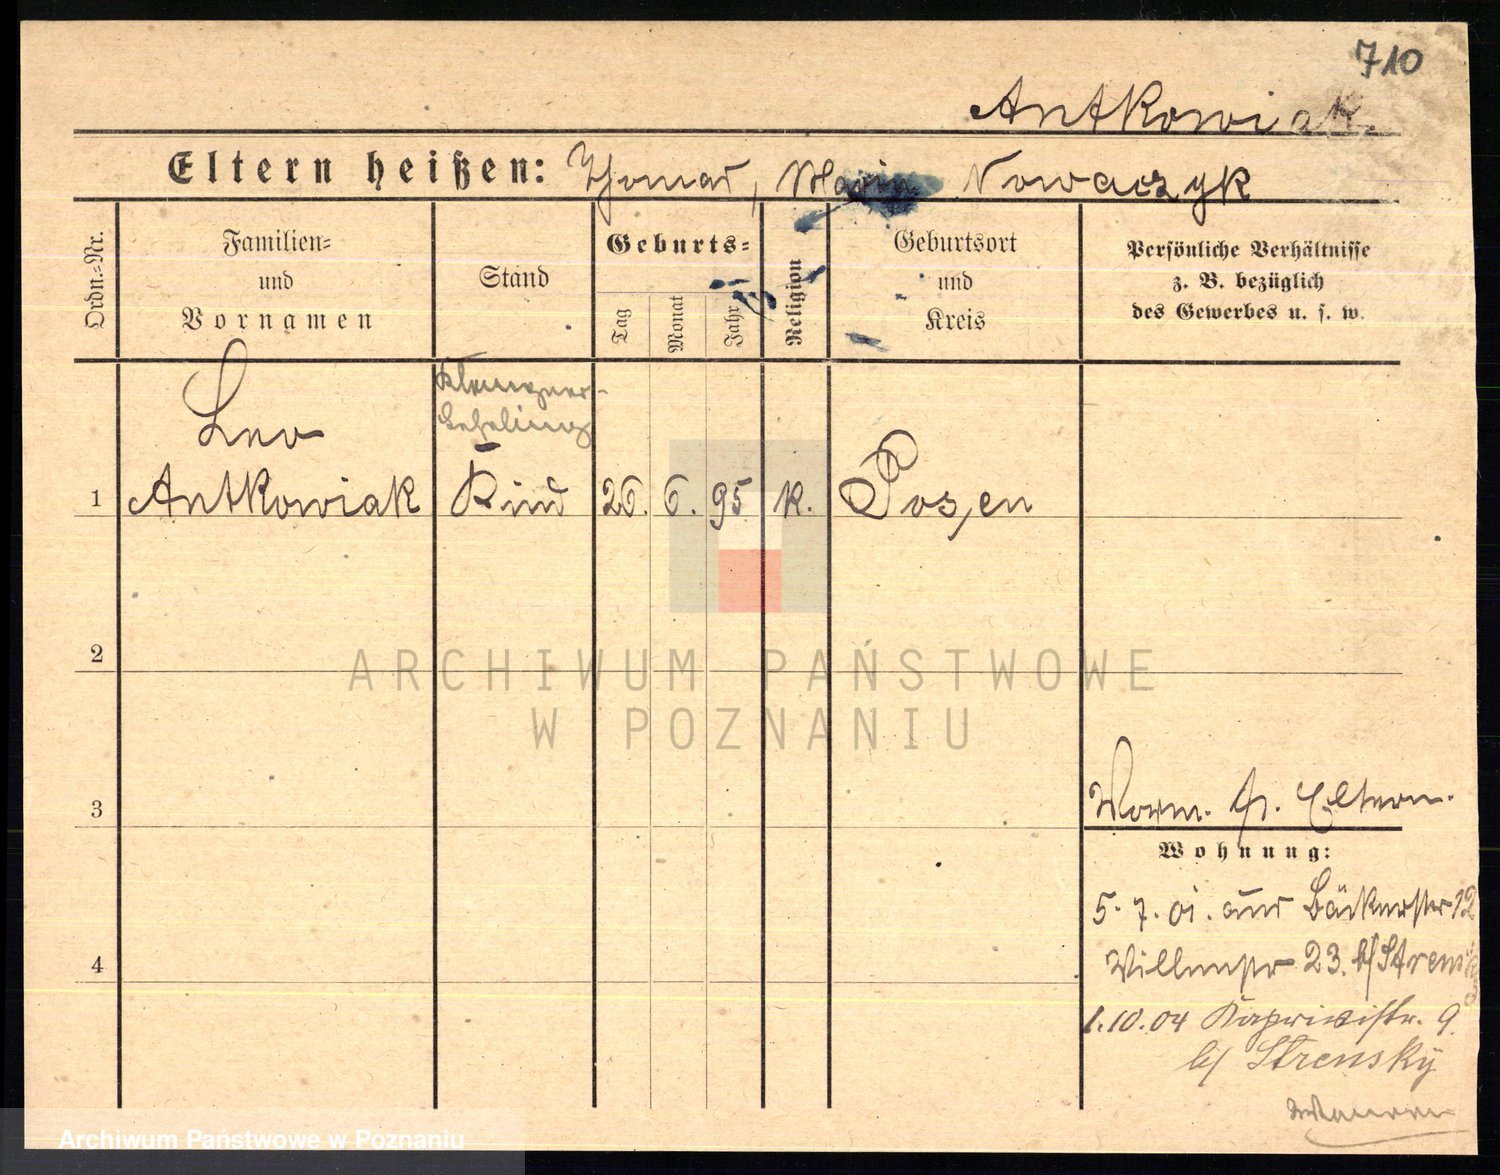 710
Antkowiak.
Eltern heißen: Thomas, Maria Nowaczyk
Ordn.=Nr.
Familien=
und
Vornamen
Stand
Geburts=
Tag
Monat
Jahr
Religion
Geburtsort
und
Kreis
Persönliche Verhältnisse
z. B. bezüglich
des Gewerbes u. s. w.
Klempner-
Lehrling
Leo
1 Antkowiak Kind 26. 6. 95 k. Posen
2
3
4
Vorm. s. Eltern.
Wohnung:
5. 7. 01. aus Bäckerstr 12
Villenstr 23. b/ Strensky
1.10.04 Kaprivistr. 9.
b/ Strensky
ARCHIWUM PAŃSTWOWE
W POZNANIU
Archiwum Państwowe w Poznaniu